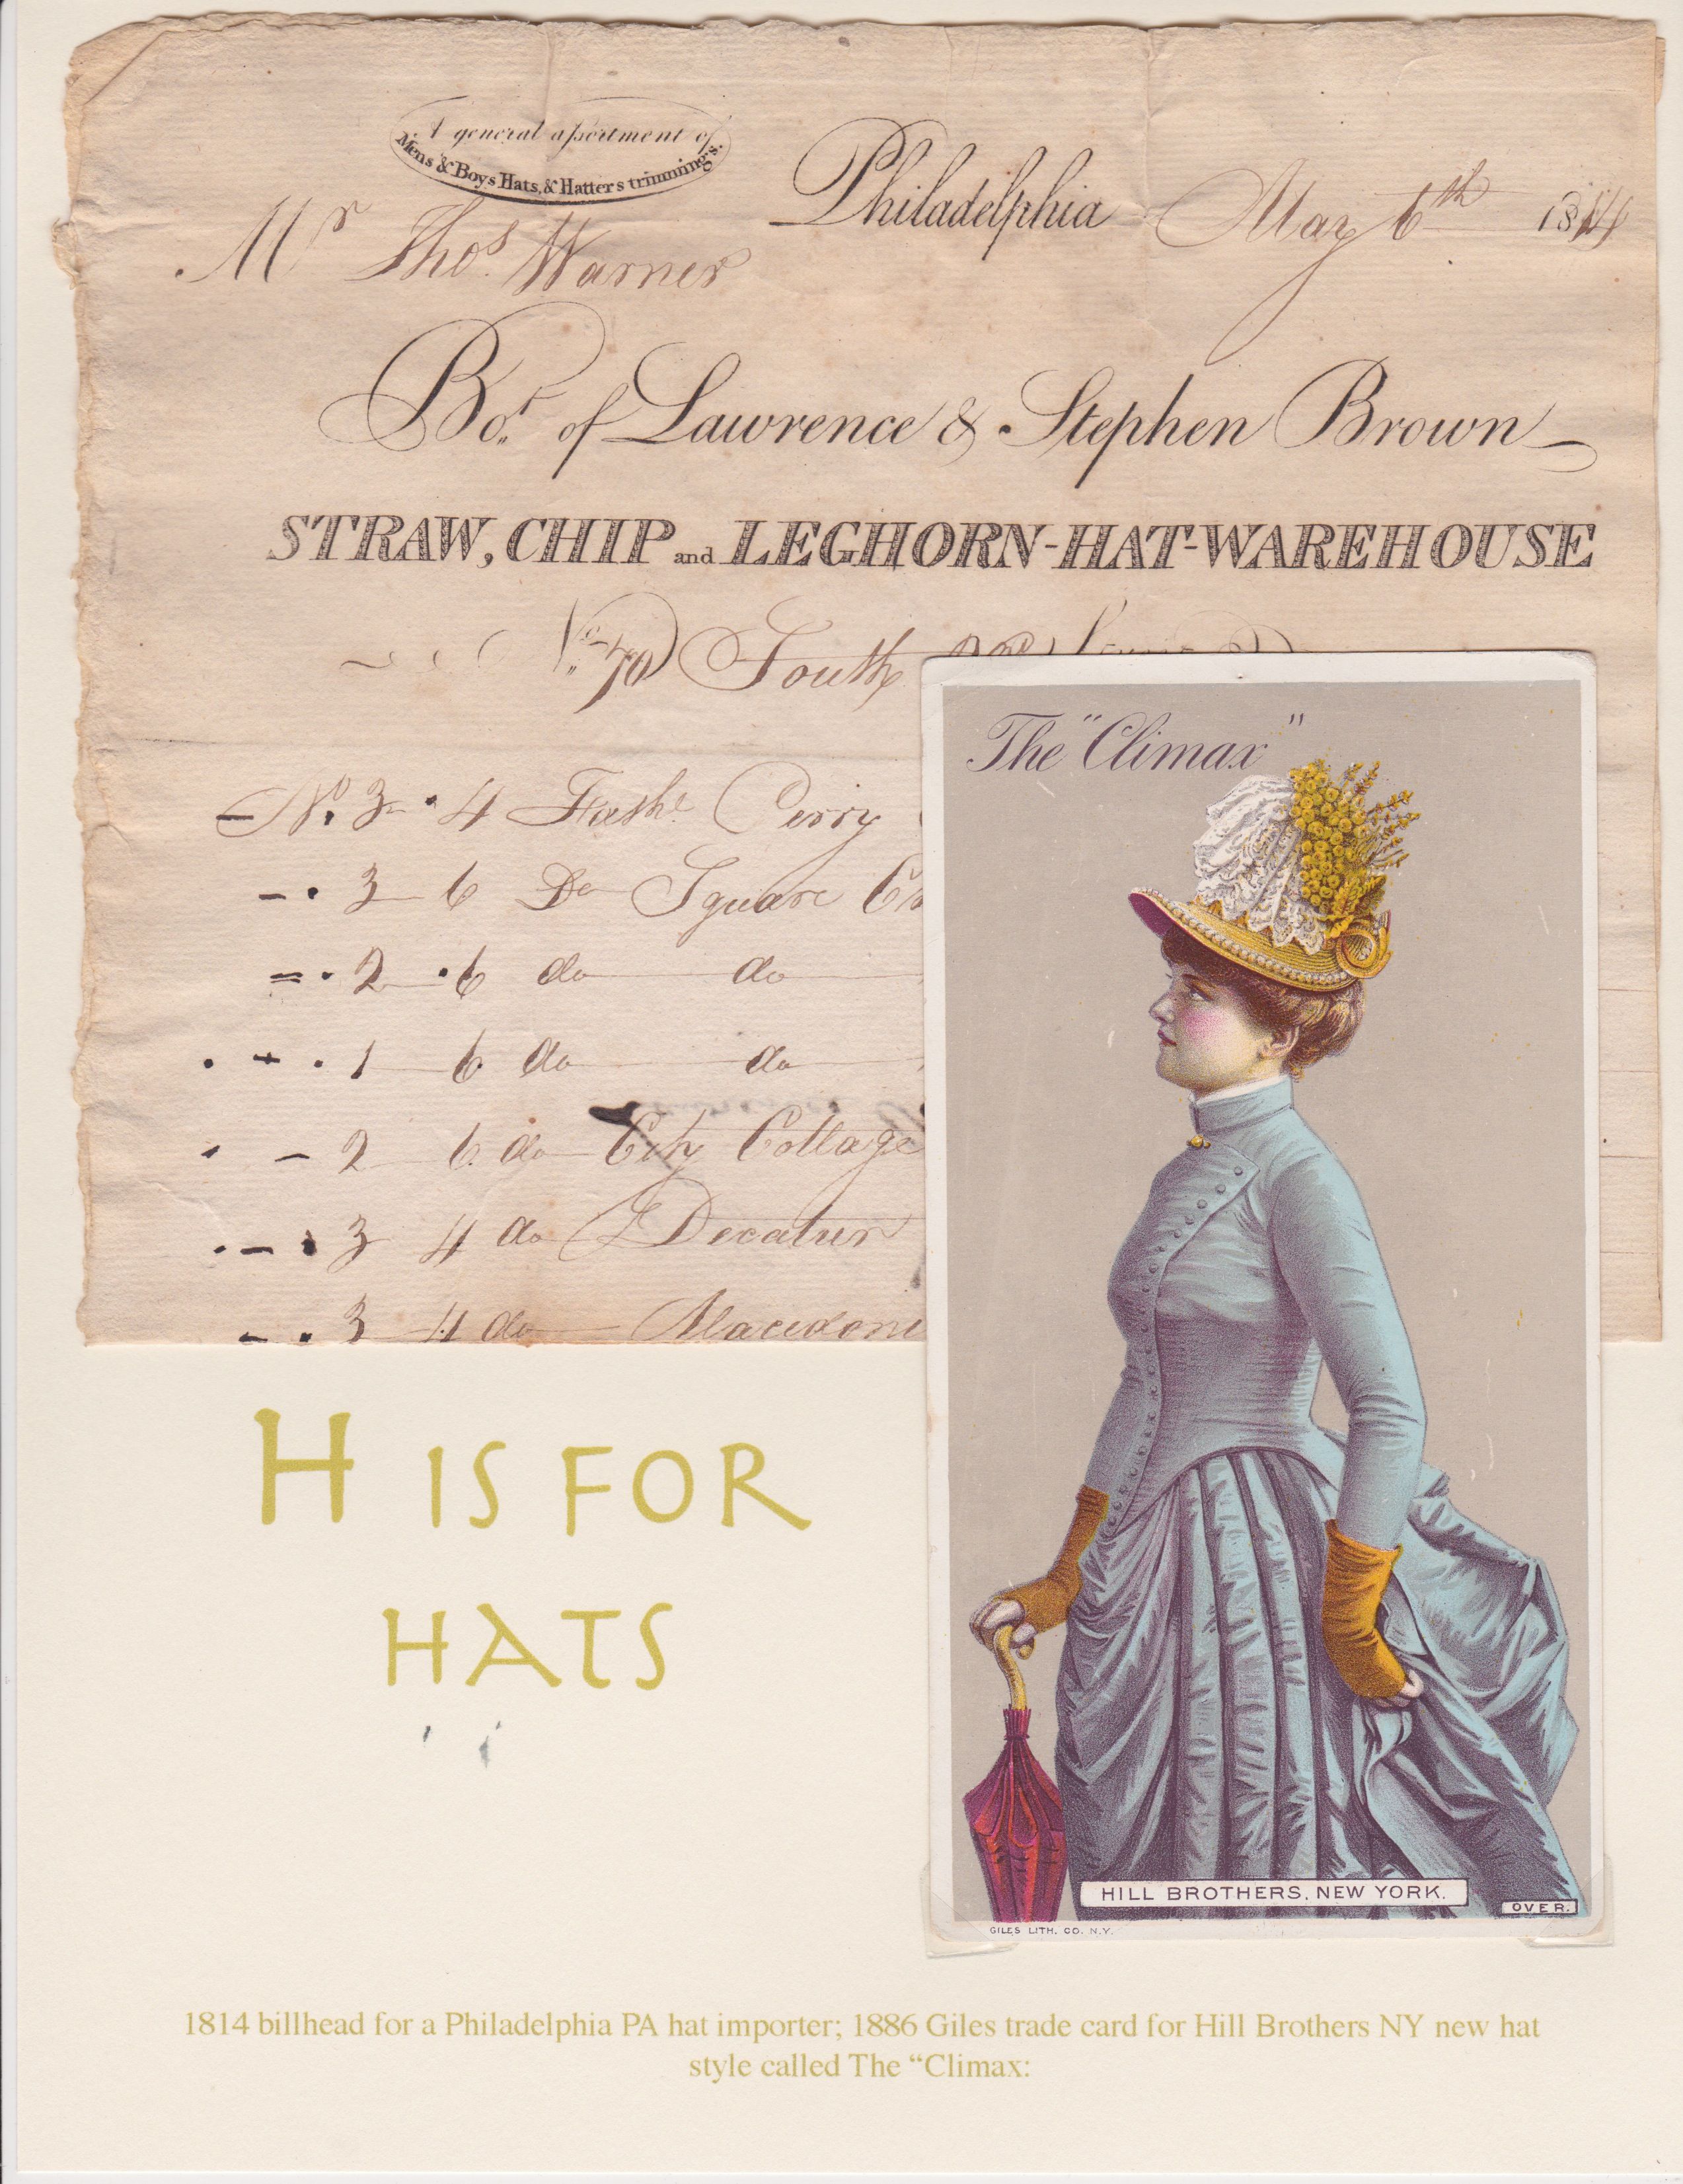 A general assortment of
Mens & Boys Hats, & Hatters trimmings.
Philadelphia May 6th 1814
Mr Thos. Warner
Bot. of Lawrence & Stephen Brown
STRAW, CHIP and LEGHORN-HAT-WAREHOUSE
No. 70 South
No. 3 - 4 Fashe. Perry
3 6 Do Square
2 6 do do
1 6 do do
2 6 do City Cottage
3 4 do Decatur
3 4 do Macedoni
The "Climax"
HILL BROTHERS, NEW YORK.
OVER.
GILES LITH. CO. N.Y.
H IS FOR
HATS
1814 billhead for a Philadelphia PA hat importer; 1886 Giles trade card for Hill Brothers NY new hat
style called The “Climax: